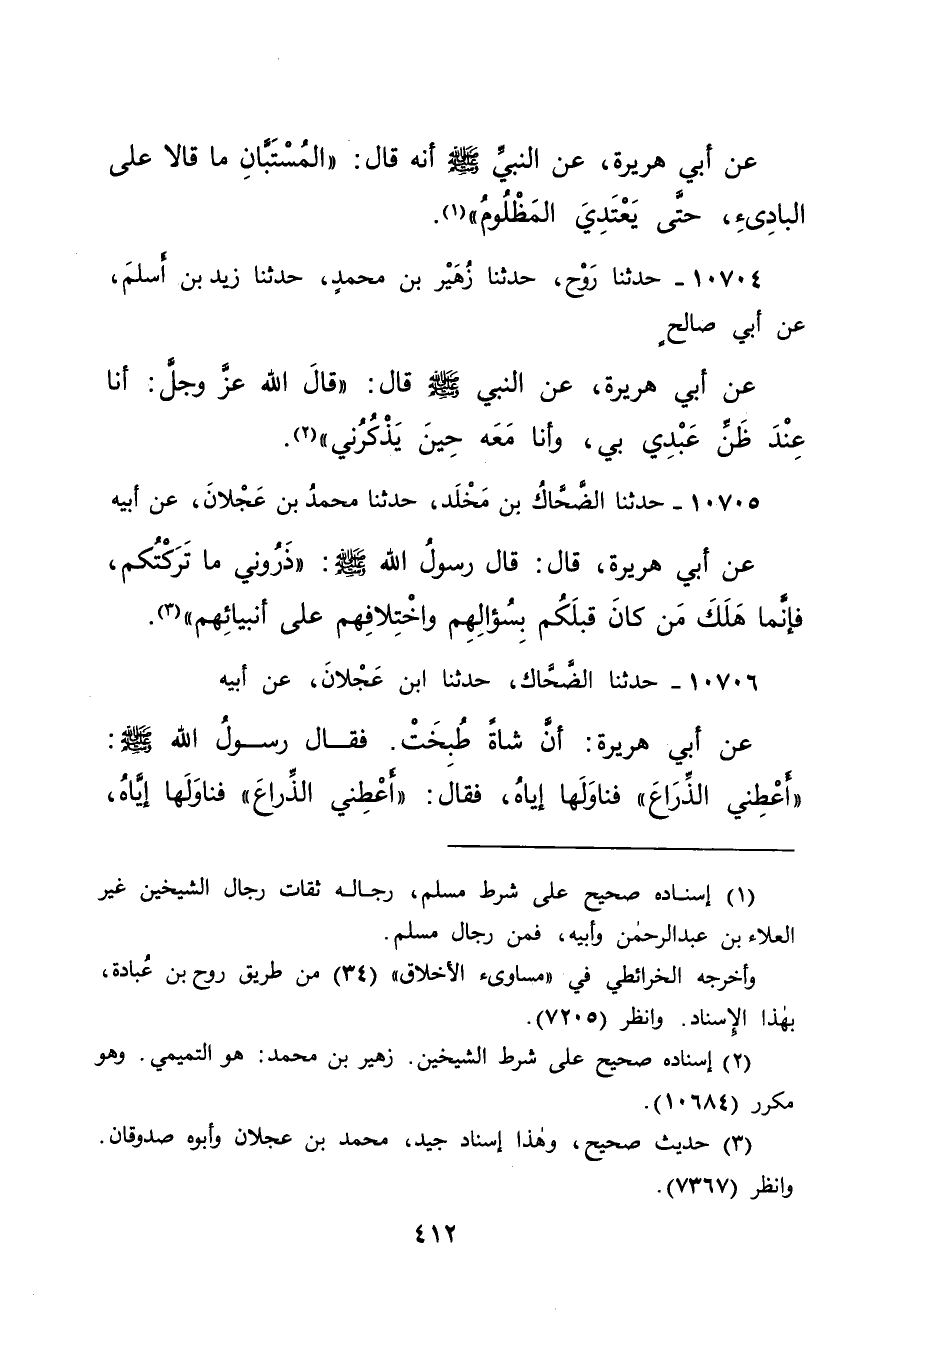 عن أبي هريرة، عن النبيِّ ﷺ أنه قال: «المُسْتَبَّانِ ما قالا على
البادِىءِ، حتَّى يَعْتَدِيَ المَظْلُومُ»(١).
١٠٧٠٤ ـ حدثنا رَوْح، حدثنا زُهَيْر بن محمدٍ، حدثنا زيد بن أَسلمَ،
عن أبي صالحٍ
عن أبي هريرة، عن النبي ﷺ قال: «قالَ الله عزَّ وجلَّ: أنا
عِنْدَ ظَنِّ عَبْدِي بي، وأنا مَعَه حِينَ يَذْكُرُني»(٢).
١٠٧٠٥ ـ حدثنا الضَّحَّاكُ بن مَخْلَد، حدثنا محمدُ بن عَجْلانَ، عن أبيه
عن أبي هريرة، قال: قال رسولُ الله ﷺ: «ذَرُوني ما تَرَكْتُكم،
فإنَّما هَلَكَ مَن كانَ قبلَكُم بِسُؤالِهِم واخْتِلافِهم على أنبيائِهم»(٣).
١٠٧٠٦ ـ حدثنا الضَّحَّاك، حدثنا ابن عَجْلانَ، عن أبيه
عن أبي هريرة: أنَّ شاةً طُبِخَتْ. فقـــال رســـولُ الله ﷺ:
«أَعْطِني الذِّرَاعَ» فناوَلَها إياهُ، فقال: «أَعْطِني الذِّراعَ» فناوَلَها إيَّاهُ،
(١) إسنــاده صحيح على شرط مسلم، رجــالــه ثقات رجال الشيخين غير
العلاء بن عبدالرحمٰن وأبيه، فمن رجال مسلم.
وأخرجه الخرائطي في «مساوىء الأخلاق» (٣٤) من طريق روح بن عُبادة،
بهٰذا الإسناد. وانظر (٧٢٠٥).
(٢) إسناده صحيح على شرط الشيخين. زهير بن محمد: هو التميمي. وهو
مكرر (١٠٦٨٤).
(٣) حديث صحيح، وهٰذا إسناد جيد، محمد بن عجلان وأبوه صدوقان.
وانظر (٧٣٦٧).
٤١٢